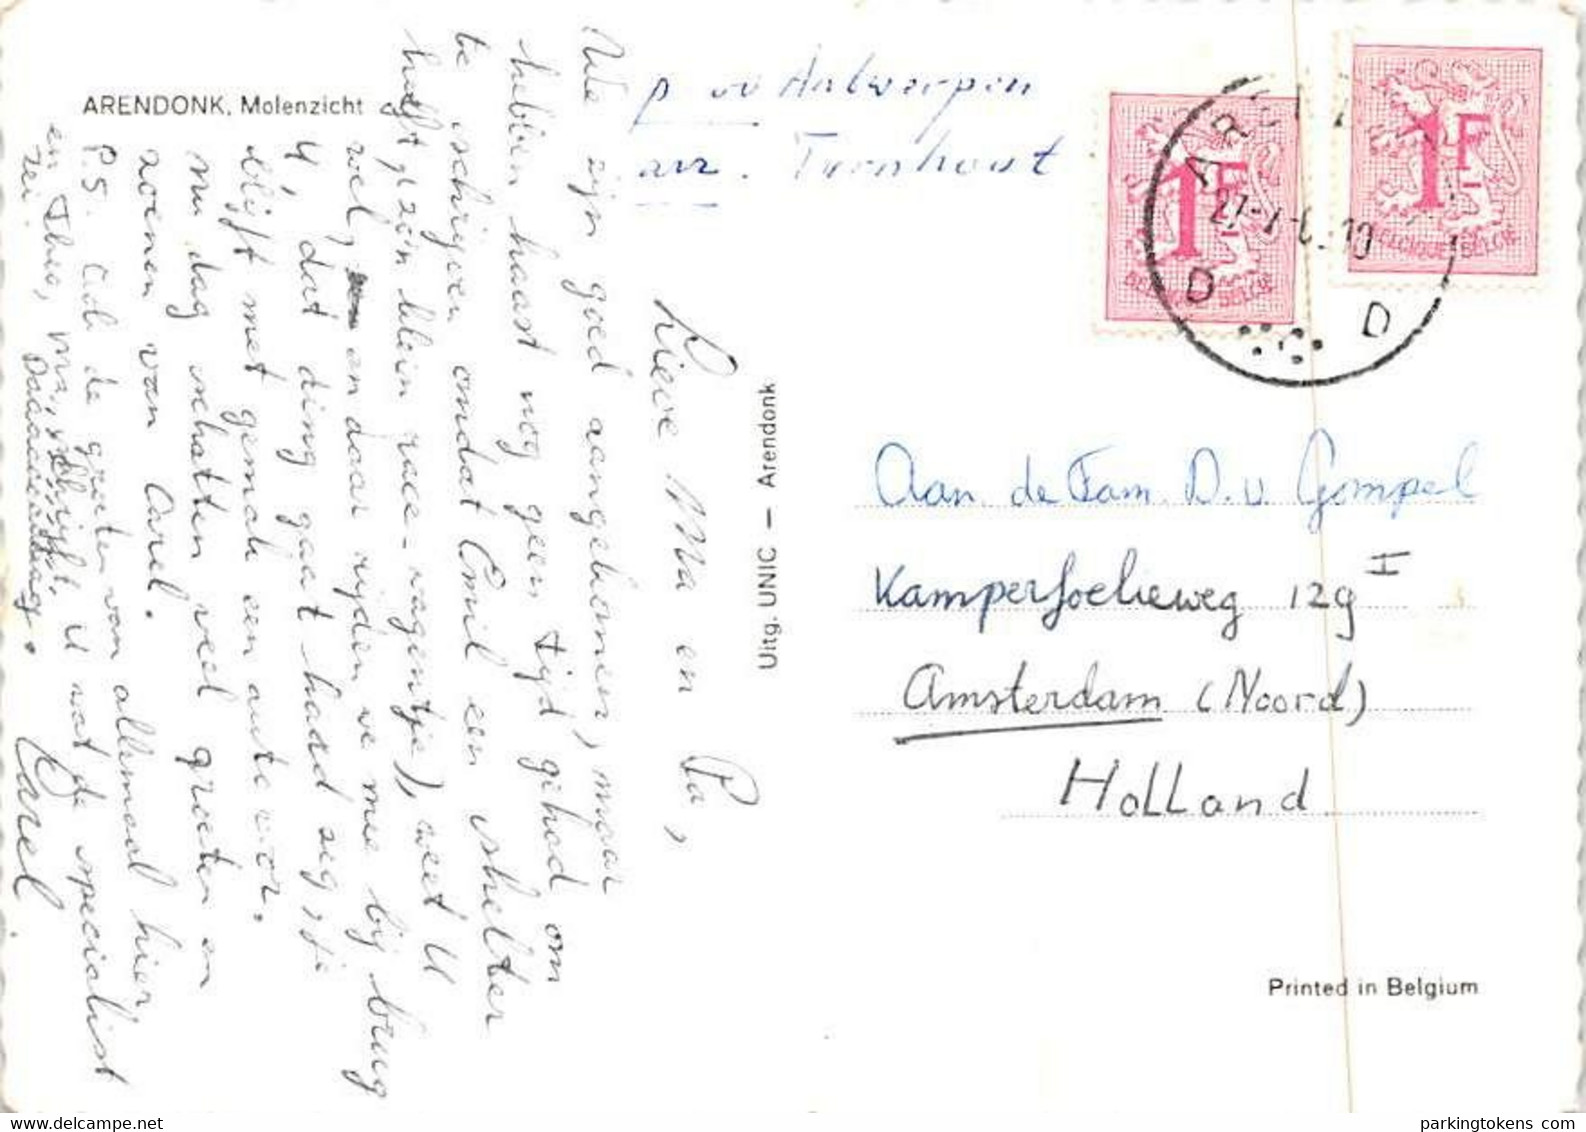 ARENDONK, Molenzicht
p vv Antwerpen
arr. Turnhout
1F
BELGIQUE BELGIË
1F
BELGIQUE BELGIË
D D
Lieve Ma en Pa,
We zijn goed aangekomen, maar
hebben haast nog geen tijd gehad om
te schrijven omdat Emil een skelter
heeft, (zo'n klein race-wagentje), weet U
wel, en daar rijden we mee bij brug
4, dat ding gaat hard zeg, je
blijft met gemak een auto voor.
nu dag schatten veel groeten en
zoenen van Carel.
P.S. Ook de groeten van allemaal hier
en Theo, ma, schrijft U wat de specialist
zei. Daaaaaaaag. Karel.
Uitg. UNIC – Arendonk
Aan de Fam. D. v Gompel
Kamperfoelieweg 129 II
Amsterdam (Noord)
HoLLand
Printed in Belgium
parkingtokens.com